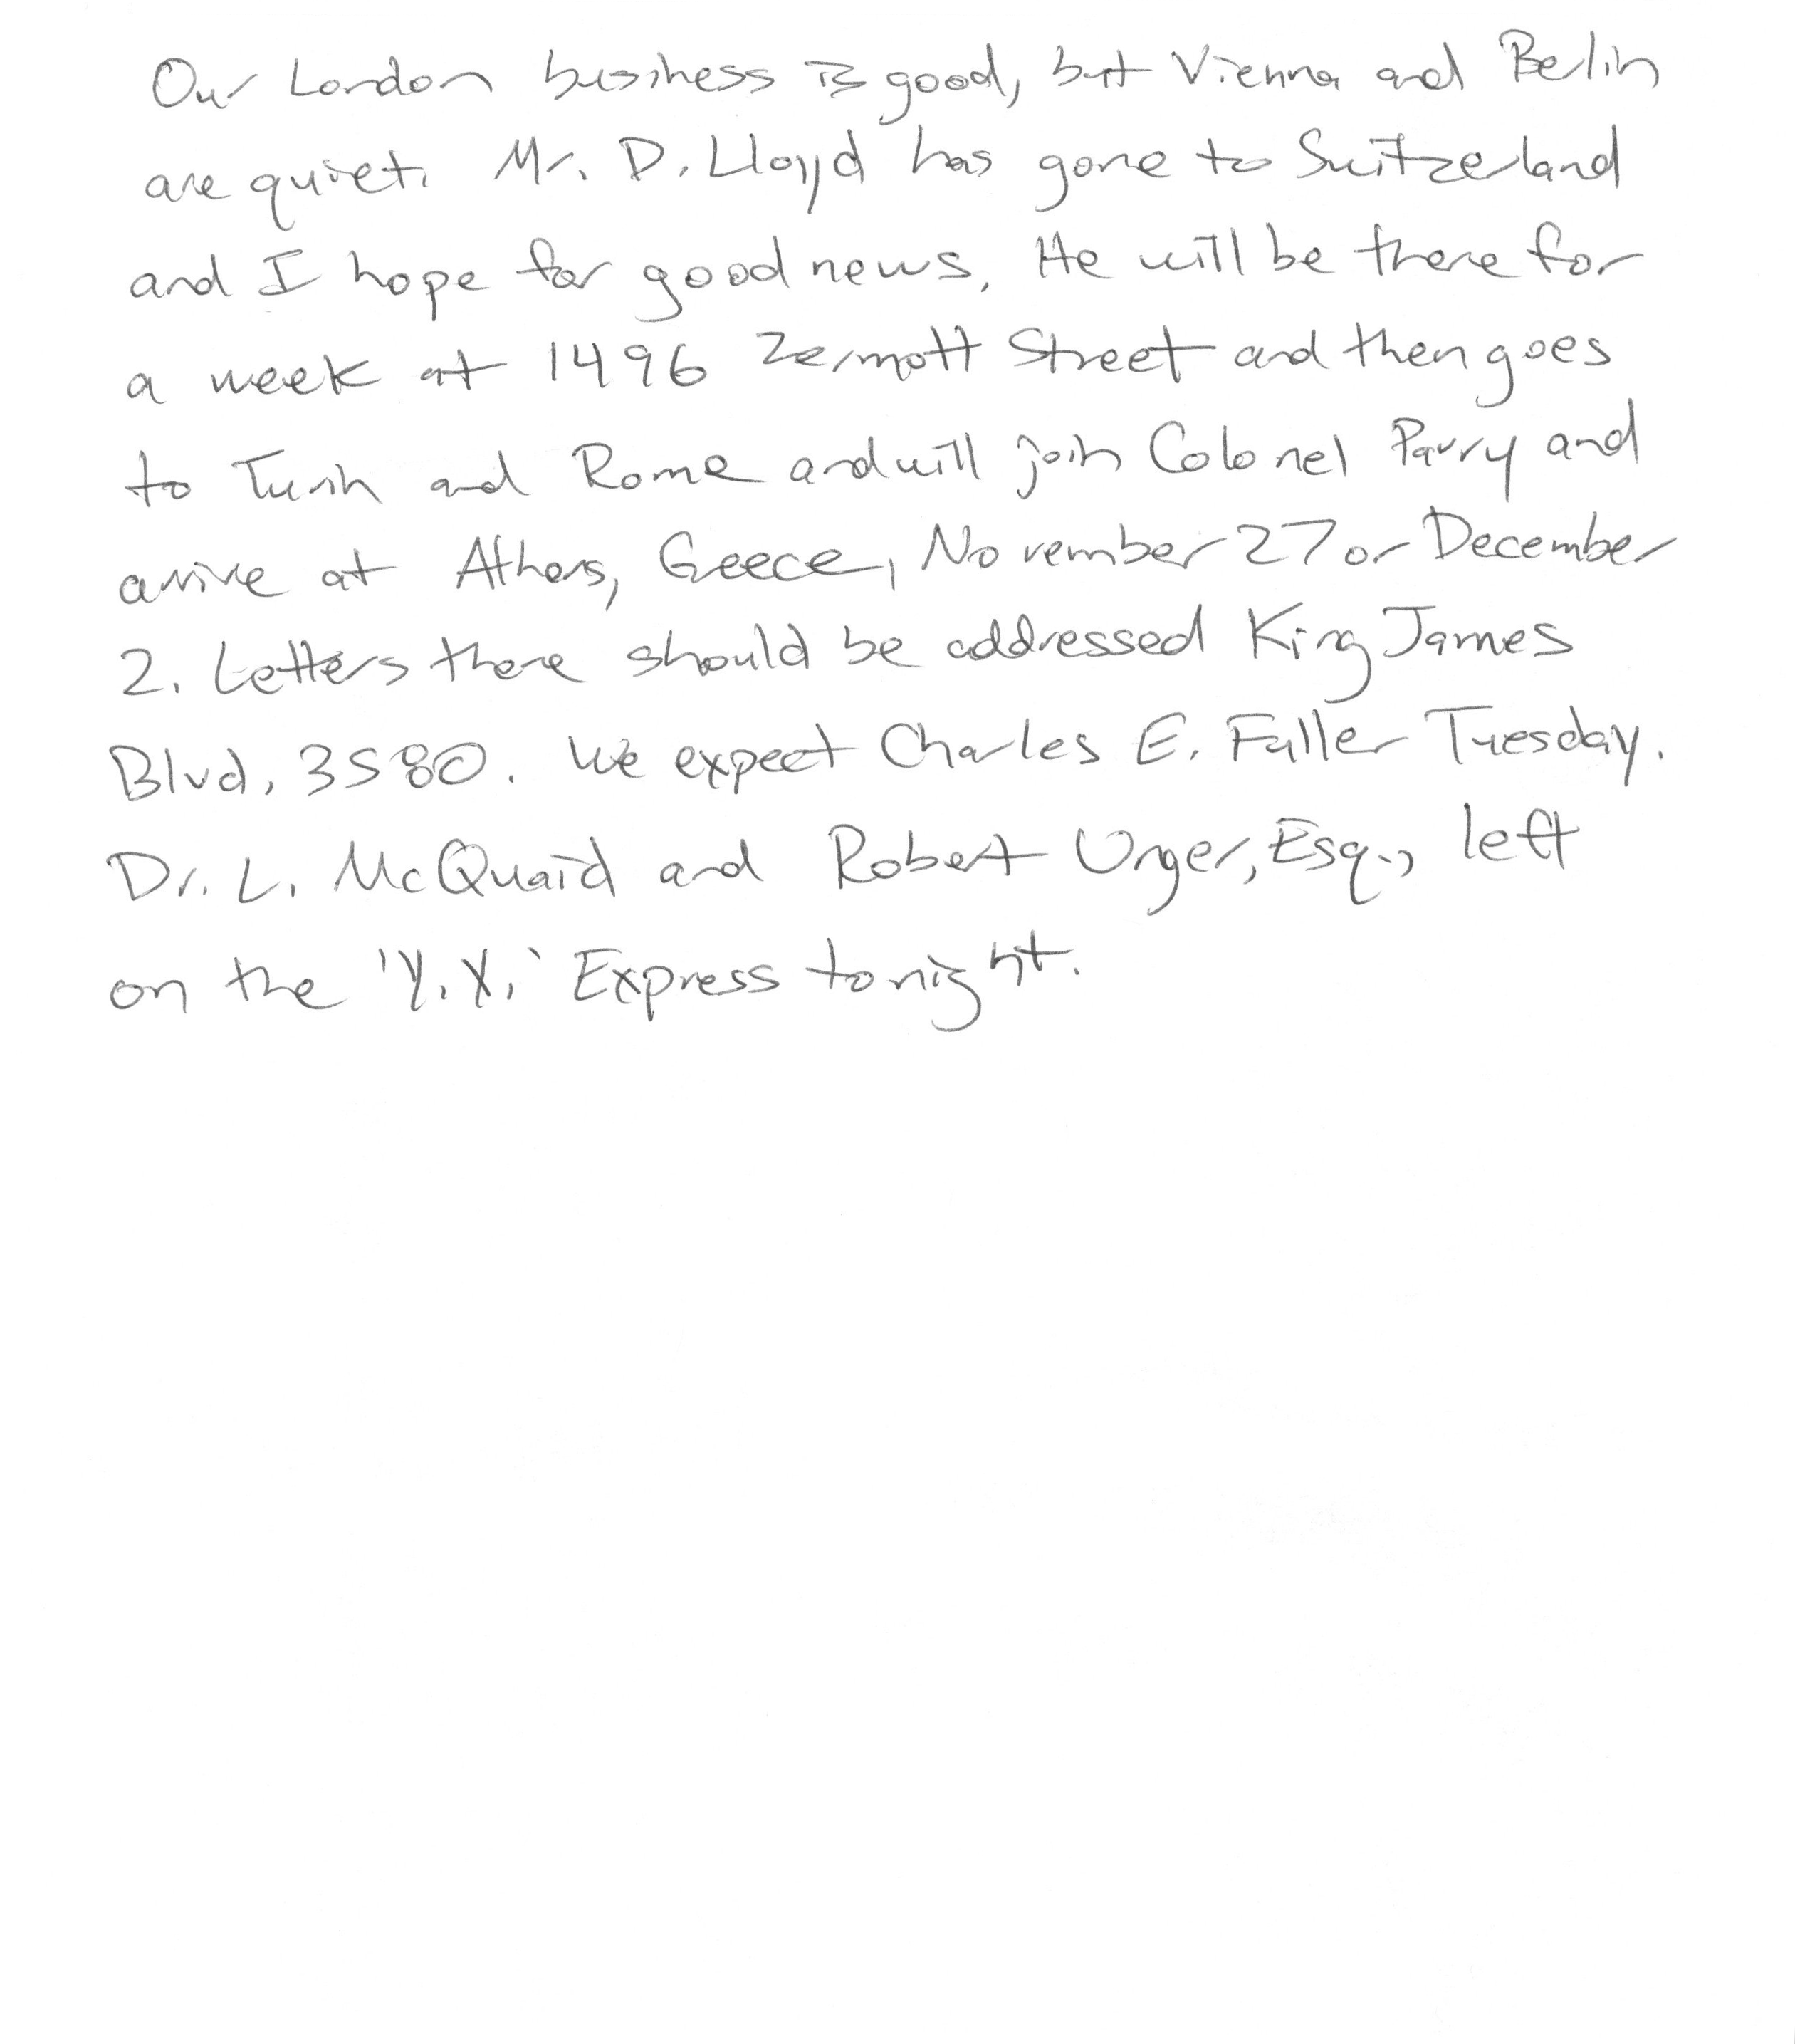 Our London business is good, but Vienna and Berlin
are quiet. Mr. D. Lloyd has gone to Switzerland
and I hope for good news. He will be there for
a week at 1496 Zermott Street and then goes
to Turin and Rome and will join Colonel Parry and
arrive at Athens, Greece, November 27 or December
2. Letters there should be addressed King James
Blvd. 3580. We expect Charles E. Fuller Tuesday.
Dr. L. McQuaid and Robert Unger, Esq., left
on the 'Y.X.' Express tonight.